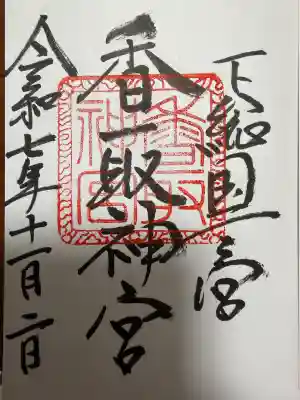 下総国一之宮
香取神宮
令和七年十一月二日
香取神宮